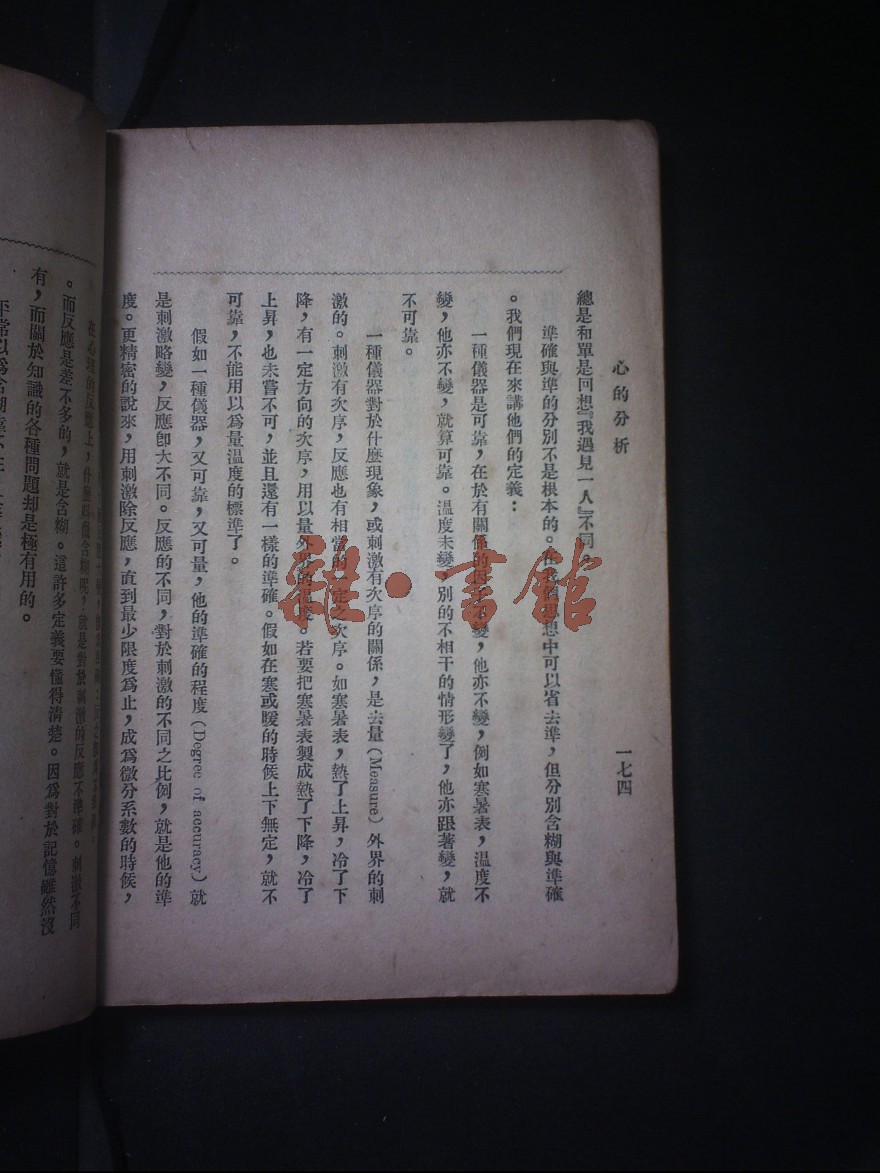 心的分析
一七四
總是和單是回想『我遇見一人』不同。
準確與準的分別不是根本的。在我們思想中可以省去準,但分別含糊與準確
。我們現在來講他們的定義:
一種儀器是可靠,在於有關係的因子不變,他亦不變,例如寒暑表,溫度不
變,他亦不變,就算可靠。溫度未變,別的不相干的情形變了,他亦跟著變,就
不可靠。
一種儀器對於什麼現象,或刺激有次序的關係,是去量(Measure)外界的刺
激的。刺激有次序,反應也有相當的一定之次序。如寒暑表,熱了上昇,冷了下
降,有一定方向的次序,用以量外界的溫度。若要把寒暑表製成熱了下降,冷了
上昇,也未嘗不可,並且還有一樣的準確。假如在寒或暖的時候上下無定,就不
可靠,不能用以爲量溫度的標準了。
假如一種儀器,又可靠,又可量,他的準確的程度(Degree of accuracy)就
是刺激略變,反應卽大不同。反應的不同,對於刺激的不同之比例,就是他的準
度。更精密的說來,用刺激除反應,直到最少限度爲止,成爲微分系數的時候,
在心理的反應上,什麼叫做含糊呢,就是對於刺激的反應不準確。刺激不同
。而反應是差不多的,就是含糊。這許多定義要懂得清楚。因爲對於記憶雖然沒
有,而關於知識的各種問題却是極有用的。
雜·書館